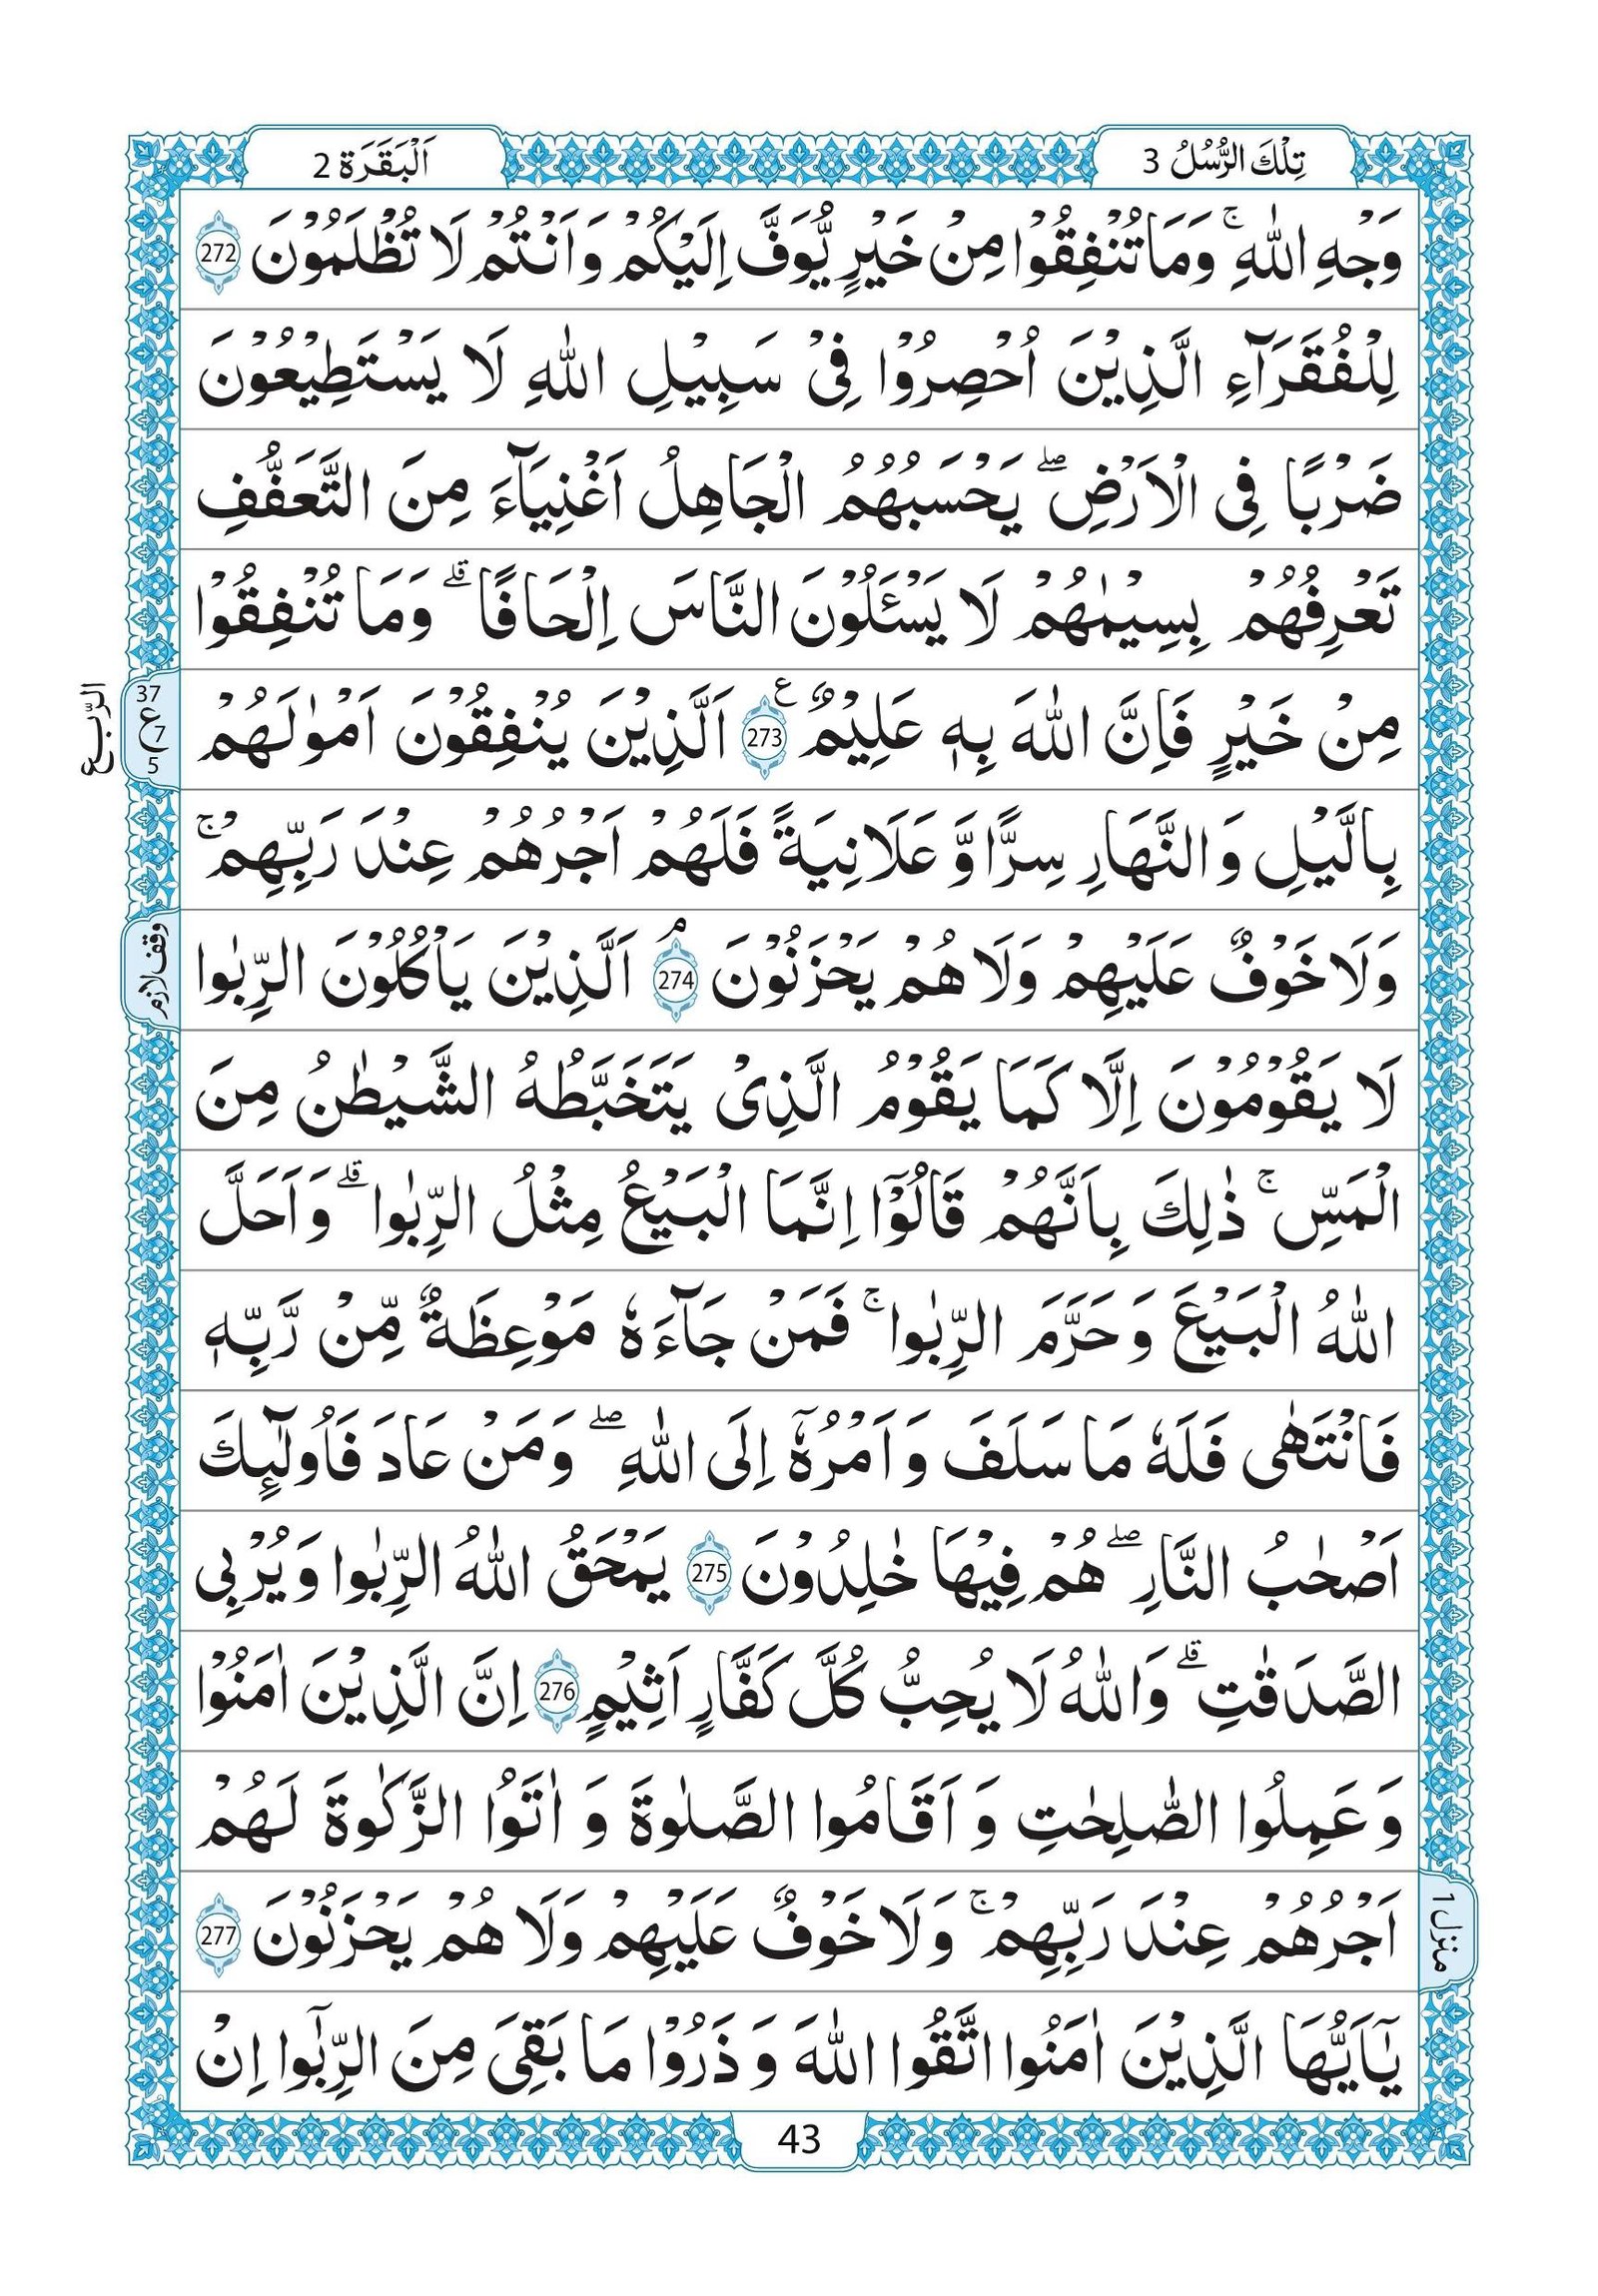 تِلْكَ الرُّسُلُ 3
اَلْبَقَرَة 2
وَجْهِ اللّٰهِ ۚ وَمَا تُنْفِقُوْا مِنْ خَيْرٍ يُّوَفَّ اِلَيْكُمْ وَاَنْتُمْ لَا تُظْلَمُوْنَ 272
لِلْفُقَرَآءِ الَّذِيْنَ اُحْصِرُوْا فِىْ سَبِيْلِ اللّٰهِ لَا يَسْتَطِيْعُوْنَ
ضَرْبًا فِى الْاَرْضِ ۖ يَحْسَبُهُمُ الْجَاهِلُ اَغْنِيَآءَ مِنَ التَّعَفُّفِ
تَعْرِفُهُمْ بِسِيْمٰهُمْ لَا يَسْـَٔلُوْنَ النَّاسَ اِلْحَافًا ۗ وَمَا تُنْفِقُوْا
مِنْ خَيْرٍ فَاِنَّ اللّٰهَ بِهٖ عَلِيْمٌ 273 ع اَلَّذِيْنَ يُنْفِقُوْنَ اَمْوٰلَهُمْ
الرّبع
37
ع 7
5
بِالَّيْلِ وَالنَّهَارِ سِرًّا وَّعَلَانِيَةً فَلَهُمْ اَجْرُهُمْ عِنْدَ رَبِّهِمْ ۚ
وَلَا خَوْفٌ عَلَيْهِمْ وَلَا هُمْ يَحْزَنُوْنَ 274 ۘ اَلَّذِيْنَ يَاْكُلُوْنَ الرِّبٰوا
وقف لازم
لَا يَقُوْمُوْنَ اِلَّا كَمَا يَقُوْمُ الَّذِىْ يَتَخَبَّطُهُ الشَّيْطٰنُ مِنَ
الْمَسِّ ۚ ذٰلِكَ بِاَنَّهُمْ قَالُوْٓا اِنَّمَا الْبَيْعُ مِثْلُ الرِّبٰوا ۗ وَاَحَلَّ
اللّٰهُ الْبَيْعَ وَحَرَّمَ الرِّبٰوا ۚ فَمَنْ جَآءَهٗ مَوْعِظَةٌ مِّنْ رَّبِّهٖ
فَانْتَهٰى فَلَهٗ مَا سَلَفَ وَاَمْرُهٗٓ اِلَى اللّٰهِ ۖ وَمَنْ عَادَ فَاُولٰٓئِكَ
اَصْحٰبُ النَّارِ ۖ هُمْ فِيْهَا خٰلِدُوْنَ 275 يَمْحَقُ اللّٰهُ الرِّبٰوا وَيُرْبِى
الصَّدَقٰتِ ۗ وَاللّٰهُ لَا يُحِبُّ كُلَّ كَفَّارٍ اَثِيْمٍ 276 اِنَّ الَّذِيْنَ اٰمَنُوْا
وَعَمِلُوا الصّٰلِحٰتِ وَاَقَامُوا الصَّلٰوةَ وَاٰتَوُا الزَّكٰوةَ لَهُمْ
اَجْرُهُمْ عِنْدَ رَبِّهِمْ ۚ وَلَا خَوْفٌ عَلَيْهِمْ وَلَا هُمْ يَحْزَنُوْنَ 277
منزل ١
يٰٓاَيُّهَا الَّذِيْنَ اٰمَنُوا اتَّقُوا اللّٰهَ وَذَرُوْا مَا بَقِىَ مِنَ الرِّبٰٓوا اِنْ
43